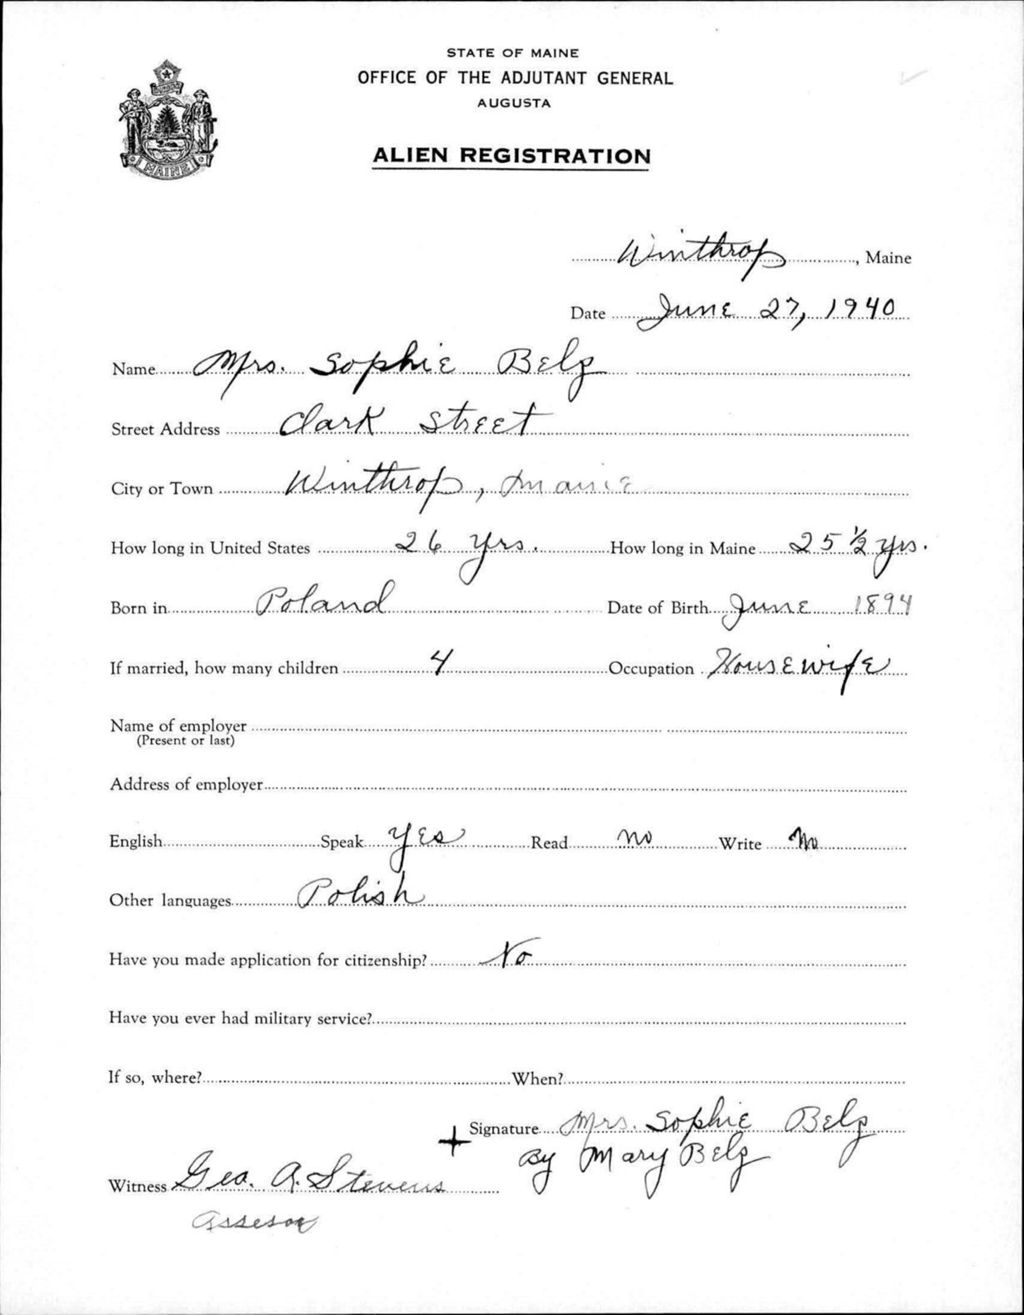 STATE OF MAINE
OFFICE OF THE ADJUTANT GENERAL
AUGUSTA
MAINE
ALIEN REGISTRATION
Winthrop, Maine
Date June 27, 1940
Name Mrs. Sophie Belz
Street Address Clark Street
City or Town Winthrop, Maine
How long in United States 26 yrs. How long in Maine 25 1/2 yrs.
Born in Poland Date of Birth June 1894
If married, how many children 4 Occupation Housewife
Name of employer
(Present or last)
Address of employer
English Speak Yes Read No Write No
Other languages Polish
Have you made application for citizenship? No
Have you ever had military service?
If so, where? When?
+ Signature Mrs. Sophie Belz
By Mary Belz
Witness Geo. A. Stevens
Assesor